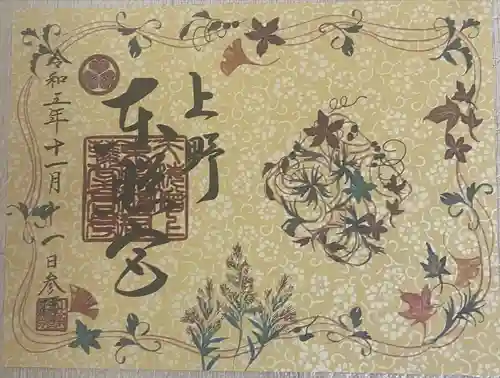 上野
東照宮
令和五年十一月十一日参拝